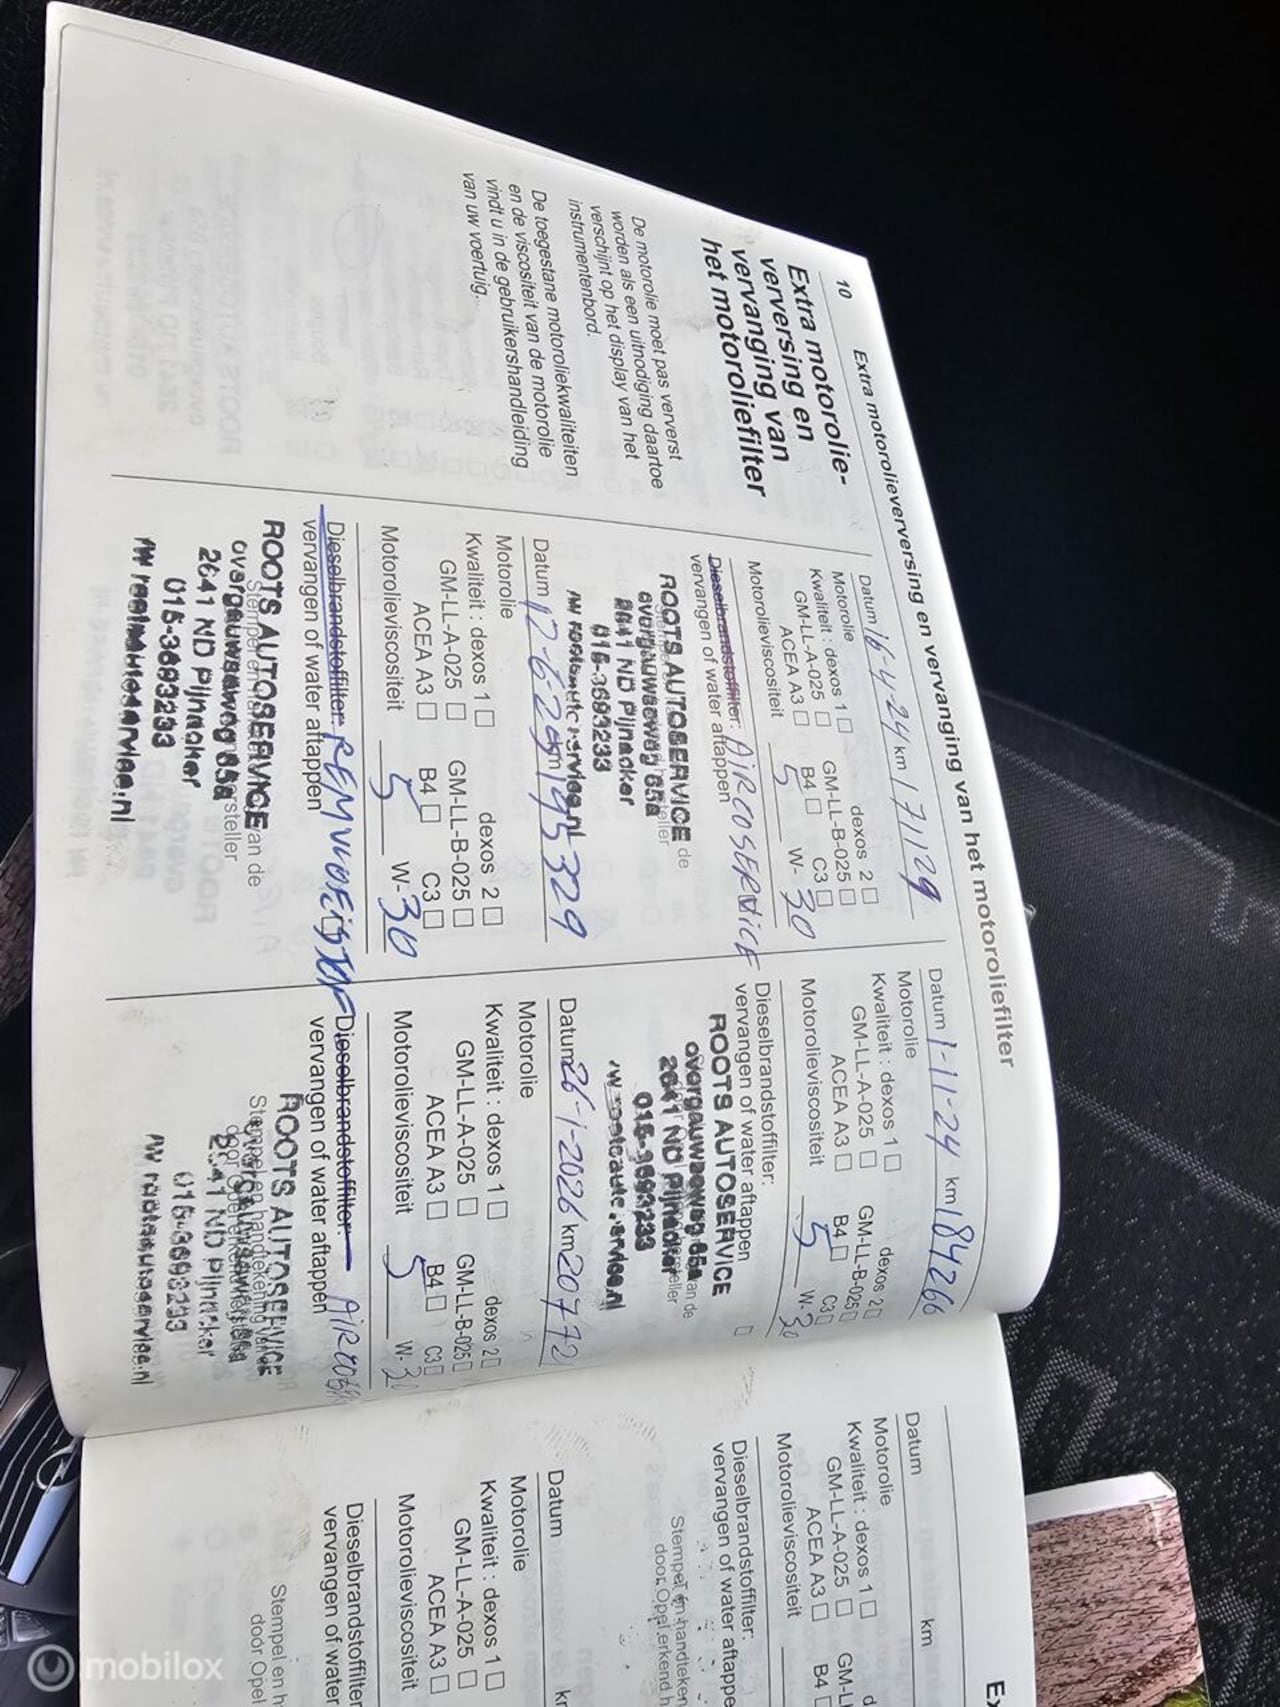 10
Extra motorolieverversing en vervanging van het motoroliefilter
Extra motorolie-
verversing en
vervanging van
het motoroliefilter
De motorolie moet pas ververst
worden als een uitnodiging daartoe
verschijnt op het display van het
instrumentenbord.
De toegestane motoroliekwaliteiten
en de viscositeit van de motorolie
vindt u in de gebruikershandleiding
van uw voertuig.
Datum 16-4-24 km 171129
Motorolie
Kwaliteit : dexos 1 □ dexos 2 □
GM-LL-A-025 □ GM-LL-B-025 □
ACEA A3 □ B4 □ C3 □
Motorolieviscositeit 5 W- 30
Dieselbrandstoffilter: AIRCOSERVICE
vervangen of water aftappen
ROOTS AUTOSERVICE
overgauwseweg 65a
2641 ND Pijnacker
015-3693233
Datum 1-11-24 km 184266
Motorolie
Kwaliteit : dexos 1 □ dexos 2 □
GM-LL-A-025 □ GM-LL-B-025 □
ACEA A3 □ B4 □ C3 □
Motorolieviscositeit 5 W- 30
Dieselbrandstoffilter:
vervangen of water aftappen □
ROOTS AUTOSERVICE
overgauwseweg 65a
2641 ND Pijnacker
015-3693233
Datum 12-6-25 km 195329
Motorolie
Kwaliteit : dexos 1 □ dexos 2 □
GM-LL-A-025 □ GM-LL-B-025 □
ACEA A3 □ B4 □ C3 □
Motorolieviscositeit 5 W- 30
Dieselbrandstoffilter: REMVLOEISTOF
vervangen of water aftappen
ROOTS AUTOSERVICE
overgauwseweg 65a
2641 ND Pijnacker
015-3693233
Datum 26-1-2026 km 20772
Motorolie
Kwaliteit : dexos 1 □ dexos 2 □
GM-LL-A-025 □ GM-LL-B-025 □
ACEA A3 □ B4 □ C3 □
Motorolieviscositeit 5 W- 3
Dieselbrandstoffilter:
vervangen of water aftappen
ROOTS AUTOSERVICE
2641 ND Pijnacker
015-3693233
Ex
Datum km
Motorolie
Kwaliteit : dexos 1 □ d
GM-LL-A-025 □ GM-L
ACEA A3 □ B4 □
Motorolieviscositeit
Dieselbrandstoffilter:
vervangen of water aftappe
Stempel en handteken
door Opel erkend h
Datum k
Motorolie
Kwaliteit : dexos 1 □
GM-LL-A-025 □
ACEA A3 □
Motorolieviscositeit
Dieselbrandstoffilter
vervangen of water
Stempel en h
door Opel
mobilox